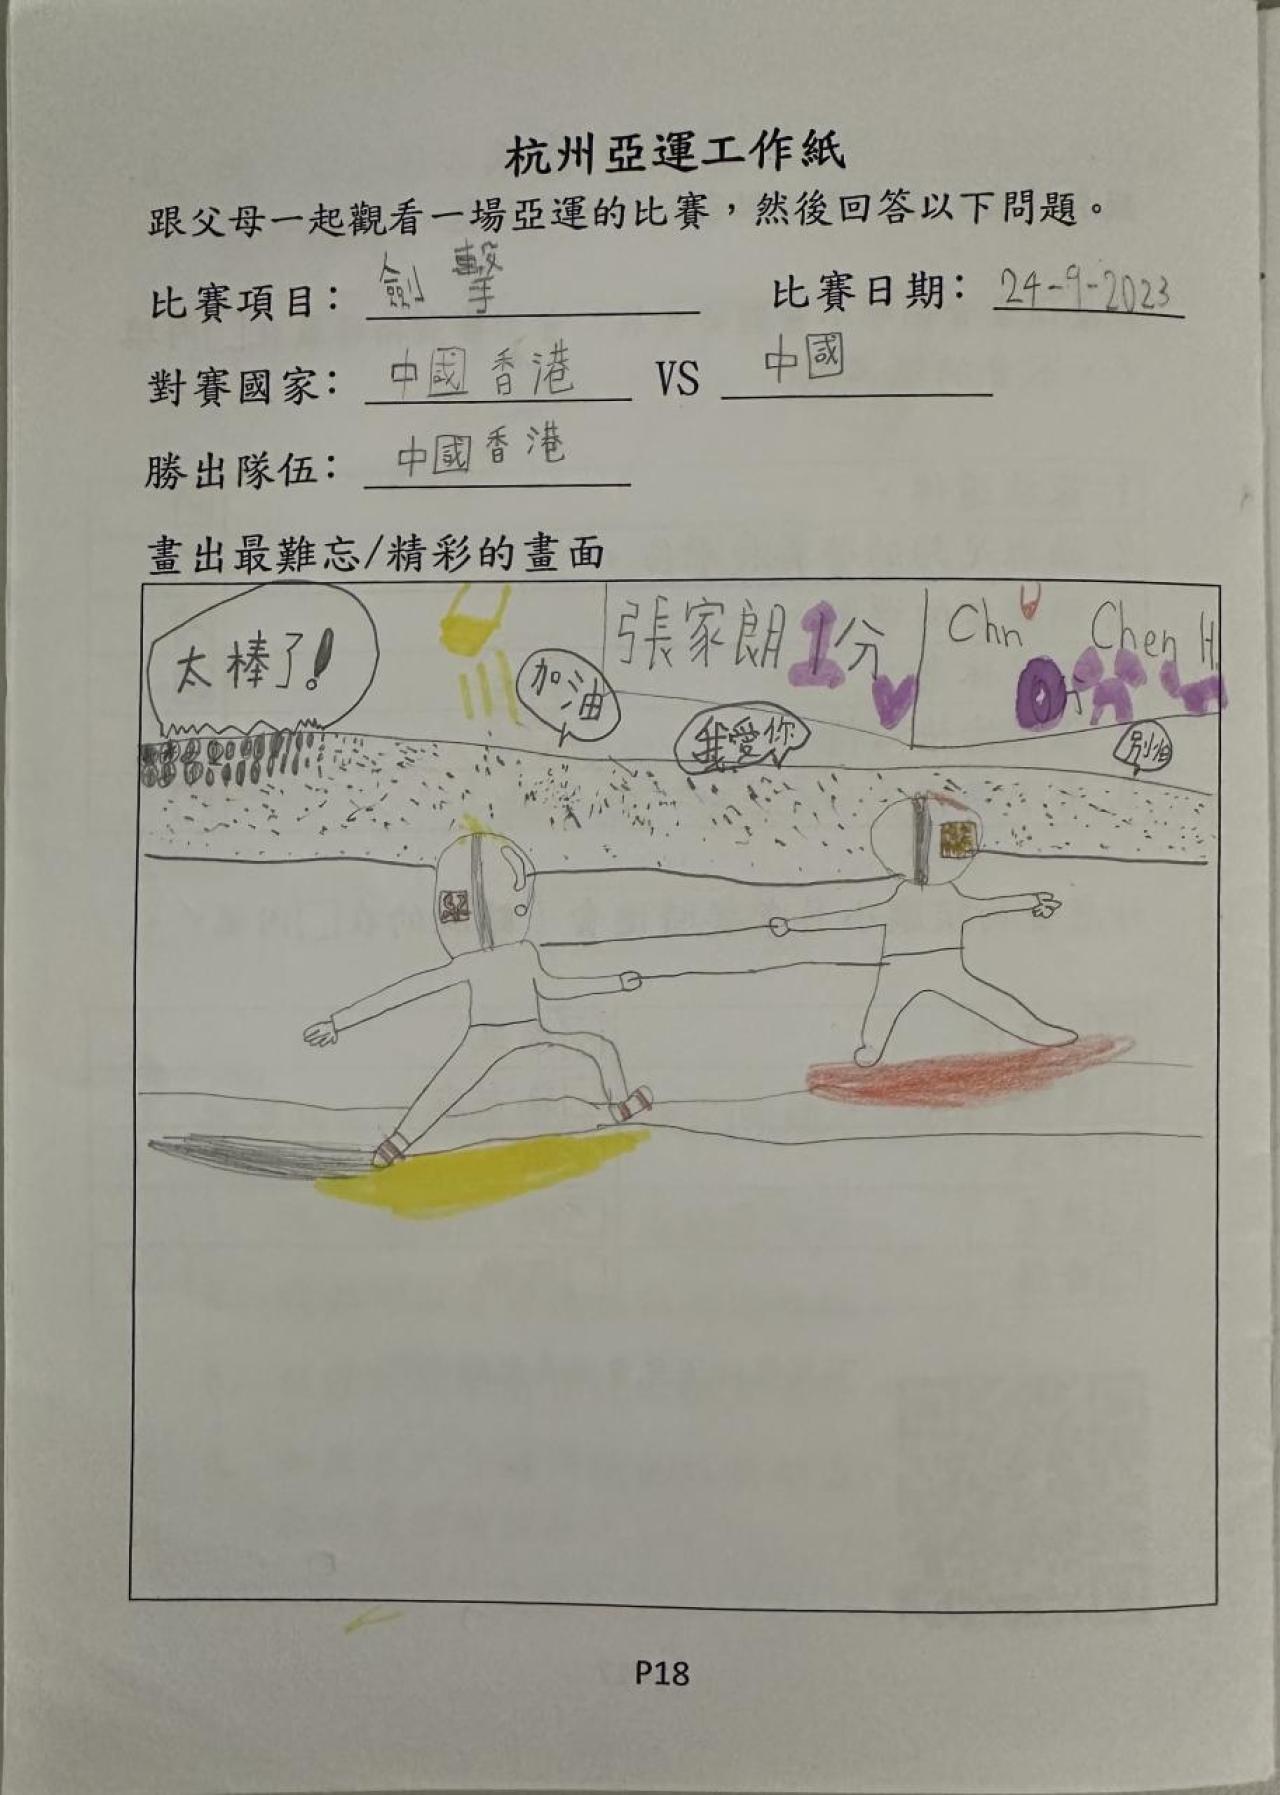 杭州亞運工作紙
跟父母一起觀看一場亞運的比賽，然後回答以下問題。
比賽項目： 劍擊 比賽日期： 24-9-2023
對賽國家： 中國香港 VS 中國
勝出隊伍： 中國香港
畫出最難忘/精彩的畫面
太棒了！
加油
張家朗1分
Chn Chen H.
0分
我愛你
別怕
P18